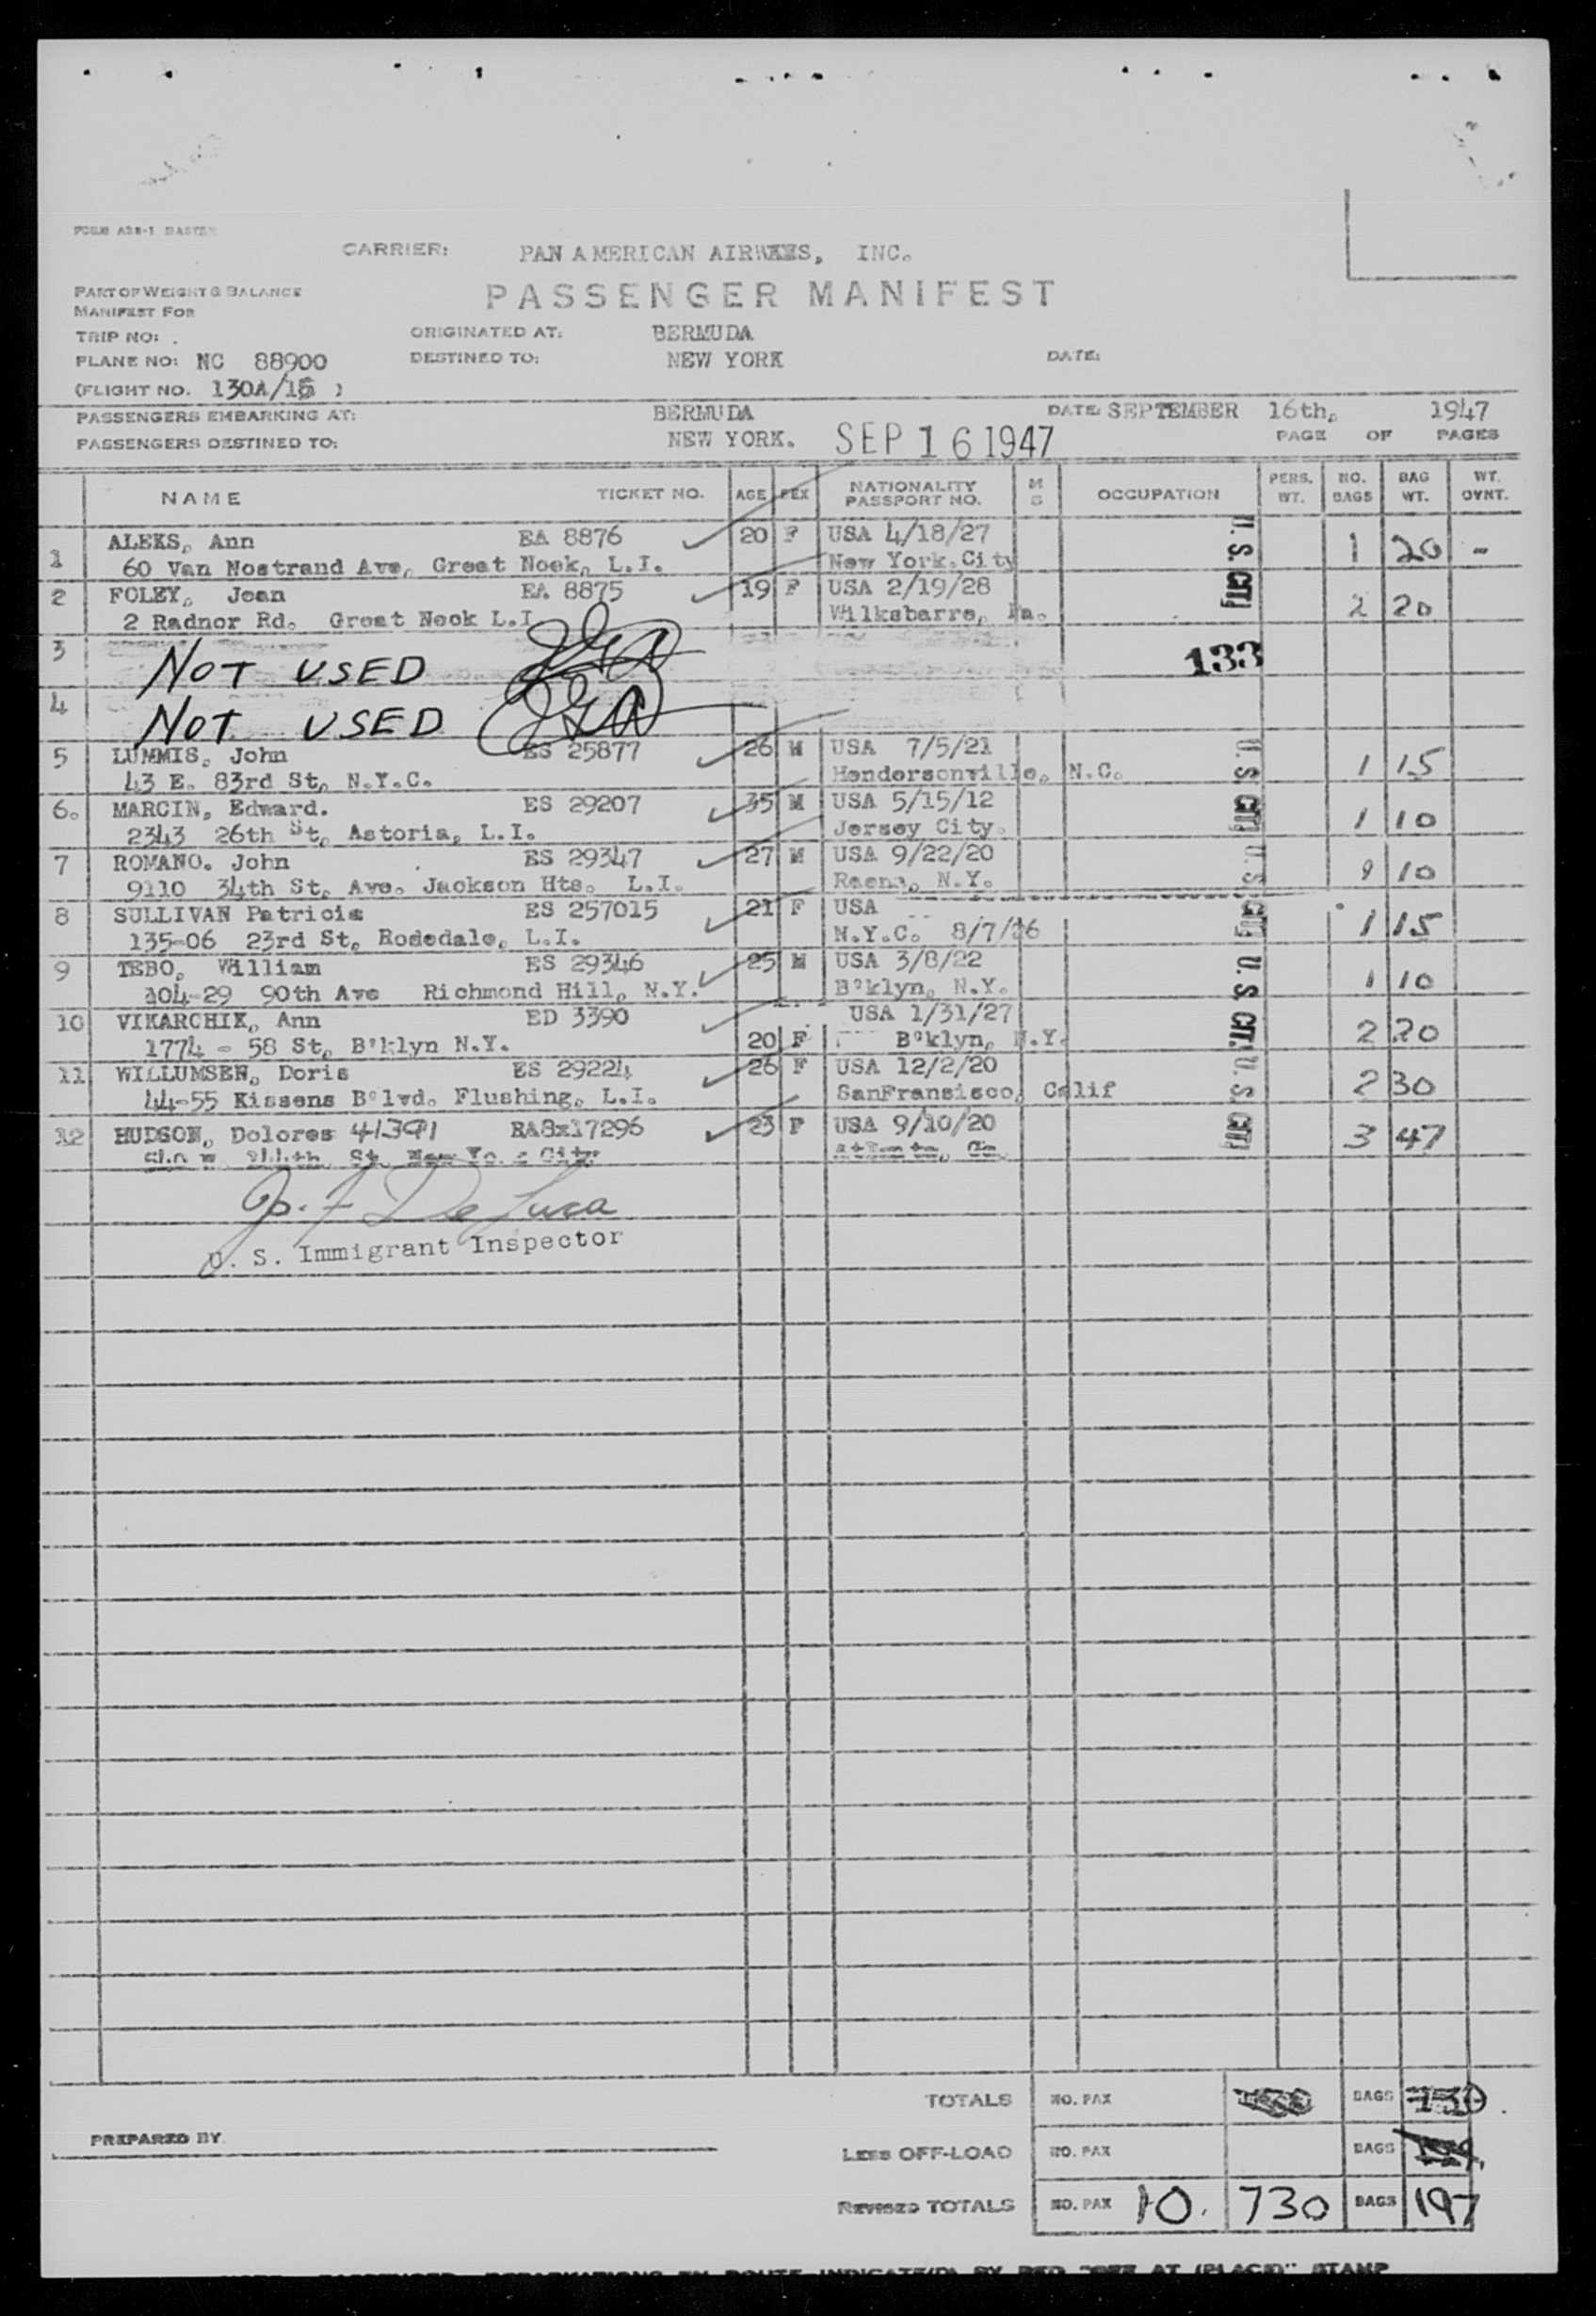 CARRIER: PAN AMERICAN AIRWAYS, INC.
PART OF WEIGHT & BALANCE
MANIFEST FOR
PASSENGER MANIFEST
TRIP NO: ORIGINATED AT: BERMUDA
PLANE NO: NC 88900 DESTINED TO: NEW YORK DATE:
(FLIGHT NO. 130A/15 )
PASSENGERS EMBARKING AT: BERMUDA DATE: SEPTEMBER 16th, 1947
PASSENGERS DESTINED TO: NEW YORK. SEP 16 1947 PAGE OF PAGES
NAME TICKET NO. AGE SEX NATIONALITY PASSPORT NO. M S OCCUPATION PERS. WT. NO. BAGS BAG WT. WT. OVNT.
1 ALEKS, Ann EA 8876 20 F USA 4/18/27 U. S. CIT. 1 20 -
60 Van Nostrand Ave, Great Neck, L.I. New York.City
2 FOLEY, Jean EA 8875 19 F USA 2/19/28 2 20
2 Radnor Rd. Great Neck L.I. Wilksbarre, Pa.
3 NOT USED 133
4 NOT USED
5 LUMMIS, John ES 25877 26 M USA 7/5/21 U. S. CIT. 1 15
43 E. 83rd St, N.Y.C. Hendersonville, N.C.
6. MARCIN, Edward. ES 29207 35 M USA 5/15/12 1 10
2343 26th St, Astoria, L.I. Jersey City.
7 ROMANO. John ES 29347 27 M USA 9/22/20 U. S. CIT. 10
9110 34th St, Ave. Jackson Hts. L.I. N.Y.
8 SULLIVAN Patricia ES 257015 21 F USA 1 15
135-06 23rd St, Rosedale, L.I. N.Y.C. 8/7/26
9 TEBO, William ES 29346 25 M USA 3/8/22 U. S. CIT. 1 10
104-29 90th Ave Richmond Hill, N.Y. B'klyn, N.Y.
10 VIKARCHIK, Ann ED 3390 USA 1/31/27 2 20
1774 - 58 St, B'klyn N.Y. 20 F B'klyn, N.Y.
11 WILLUMSEN, Doris ES 29224 26 F USA 12/2/20 U. S. CIT. 2 30
44-55 Kissena B'lvd. Flushing, L.I. SanFransisco, Calif
12 HUDSON, Dolores 41391 RA8x17296 23 F USA 9/10/20 3 47
St, City
J. F. De Luca
U. S. Immigrant Inspector
TOTALS NO. PAX BAGS 730
PREPARED BY
LESS OFF-LOAD NO. PAX BAGS
REVISED TOTALS NO. PAX 10. 730 BAGS 197